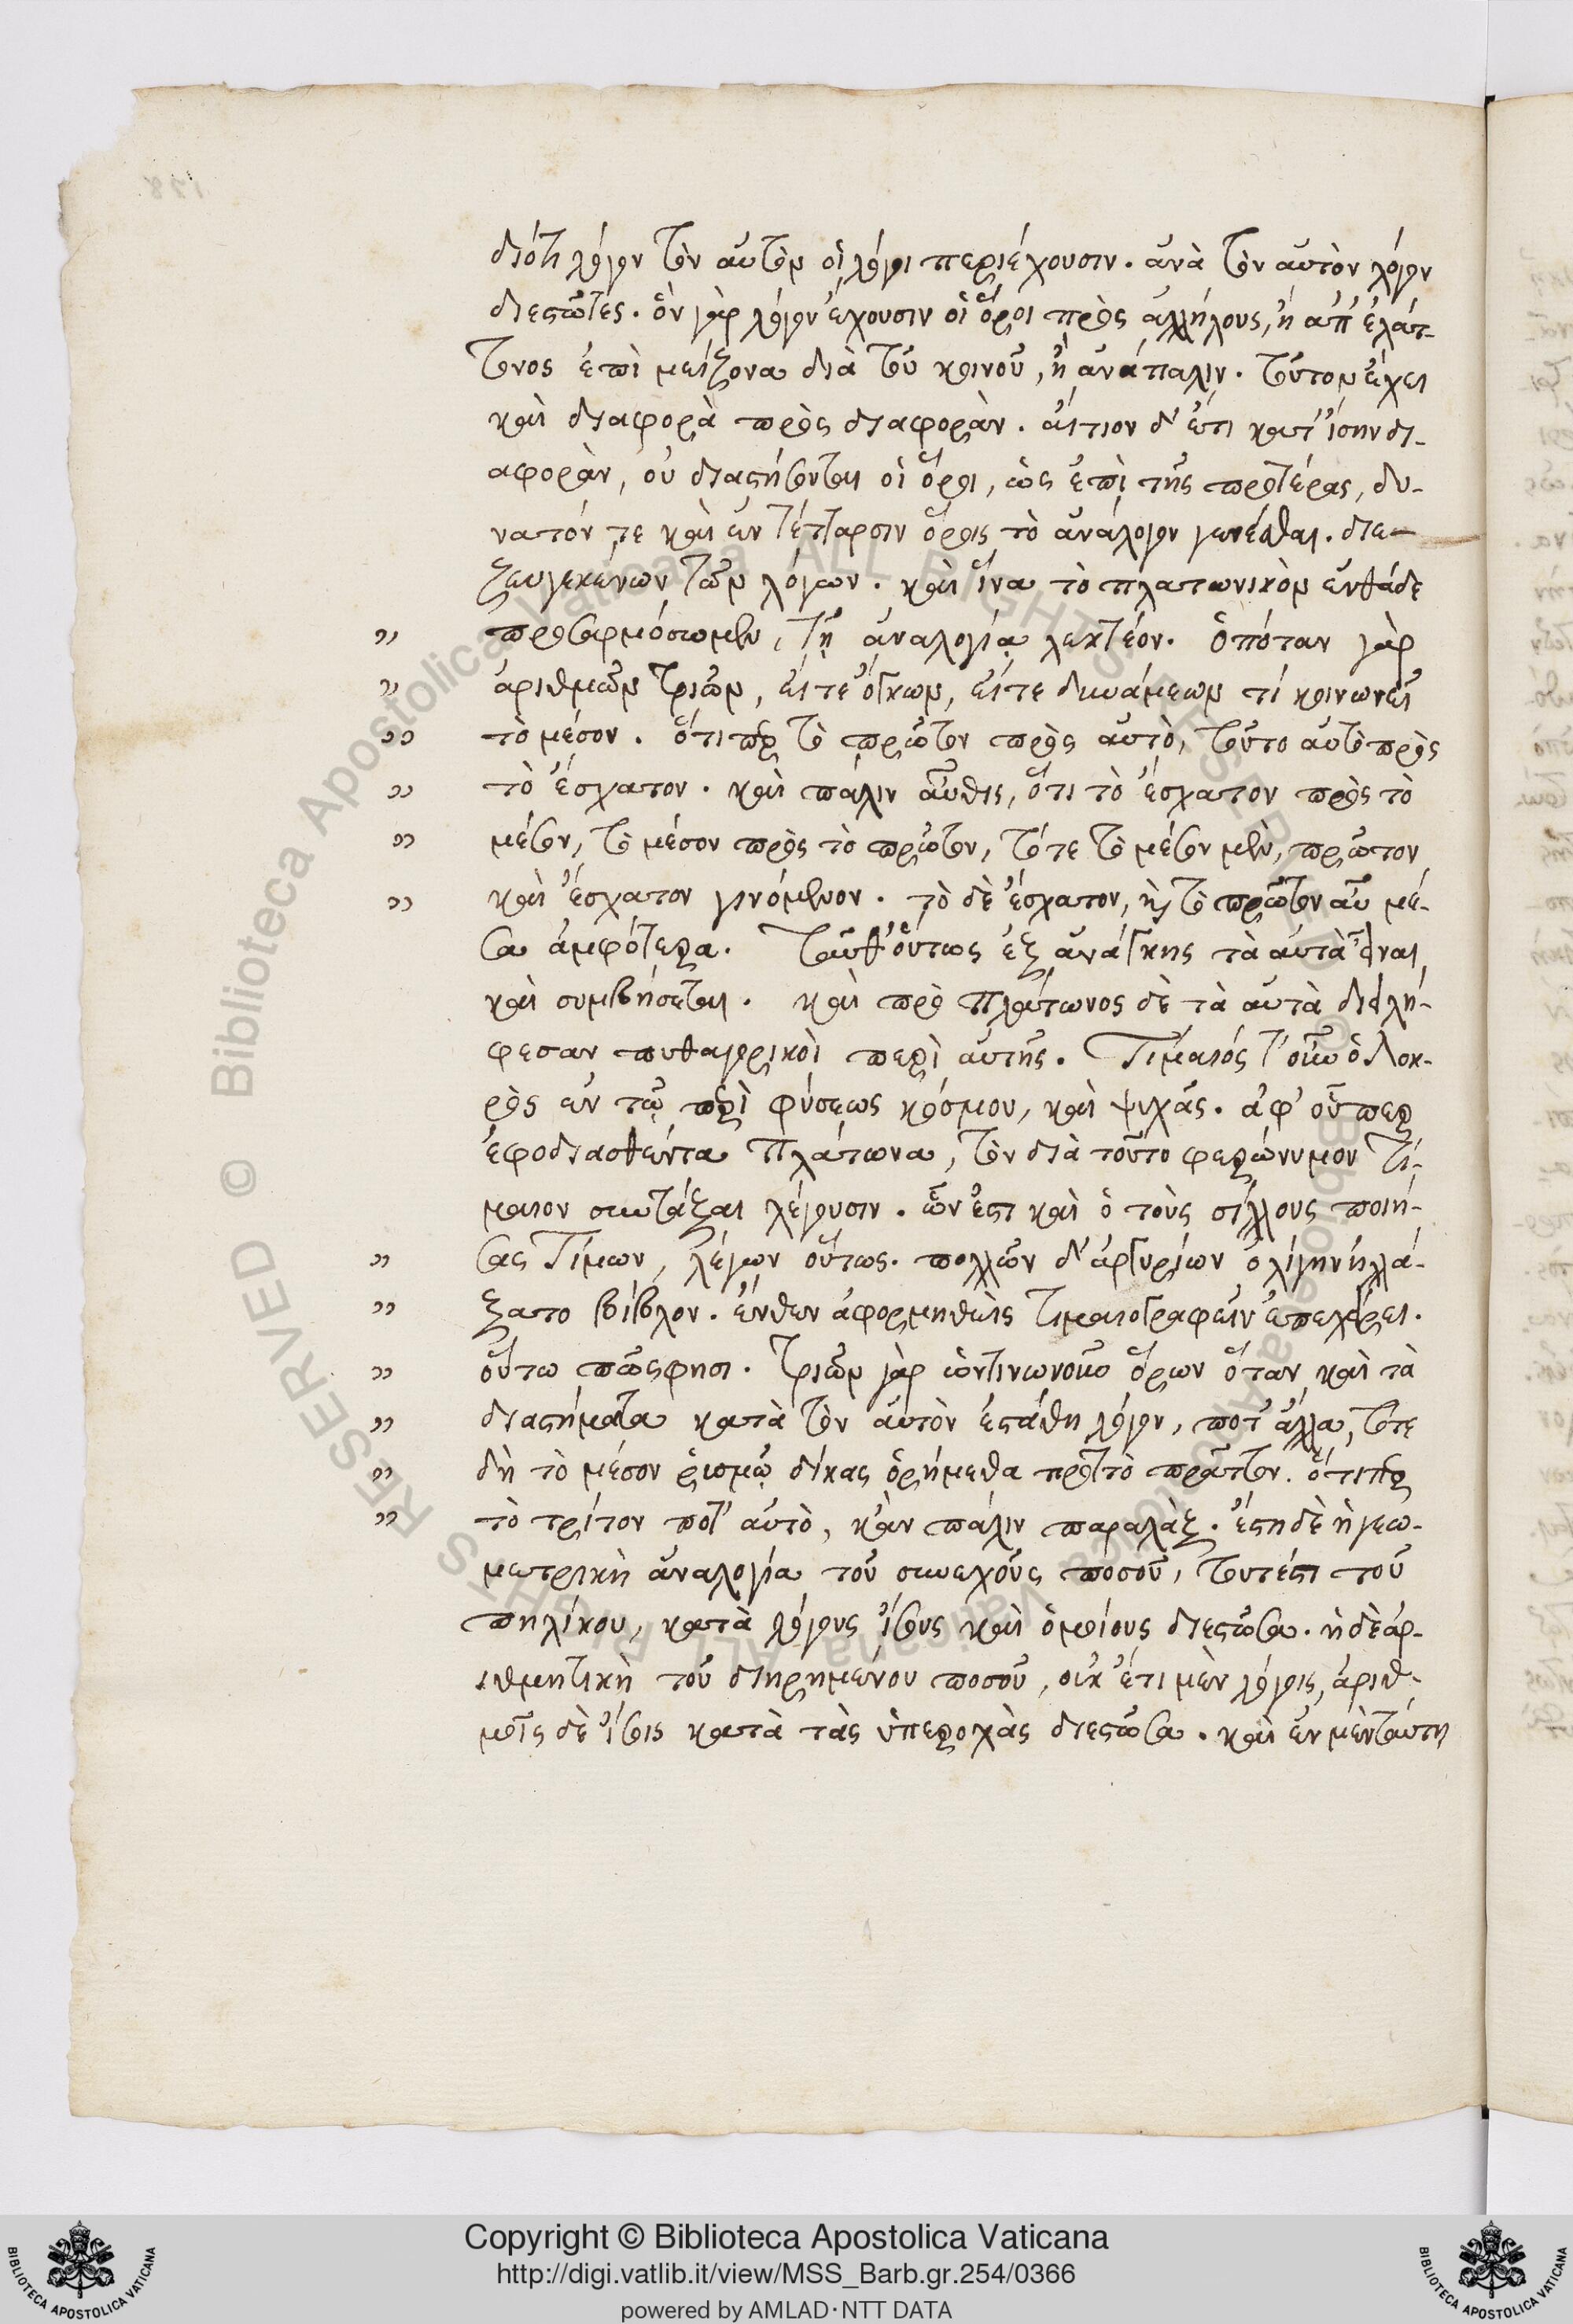 διότι λόγον τὸν αὐτὸν οἱ λόγοι περιέχουσιν. ἀνὰ τὸν αὐτὸν λόγον
διεστῶτες. ὃν γὰρ λόγον ἔχουσιν οἱ ὅροι πρὸς ἀλλήλους, ἢ ἀπ' ἐλάτ-
τονος ἐπὶ μείζονα διὰ τοῦ κοινοῦ, ἢ ἀνάπαλιν. τοῦτον ἔχει
καὶ διαφορὰ πρὸς διαφορὰν. αἴτιον δ' ἔτι κατ' ἴσην δι-
αφορὰν, οὐ διαστήσονται οἱ ὅροι, ὡς ἐπὶ τῆς προτέρας, δυ-
νατόν τε καὶ ἐν τέτταρσιν ὅροις τὸ ἀνάλογον γενέσθαι. διε-
ζευγμένων τῶν λόγων. καὶ ἵνα τὸ πλατωνικὸν ἐνθάδε
" προσαρμόσωμεν, τῇ ἀναλογίᾳ λεκτέον. ὁπόταν γὰρ
" ἀριθμῶν τριῶν, εἴτε ὄγκων, εἴτε δυνάμεων τί κοινωνεῖ
" τὸ μέσον. ὅτι περ τὸ πρῶτον πρὸς αὐτὸ, τοῦτο αὐτὸ πρὸς
" τὸ ἔσχατον. καὶ πάλιν αὖθις, ὅτι τὸ ἔσχατον πρὸς τὸ
" μέσον, τὸ μέσον πρὸς τὸ πρῶτον, τότε τὸ μέσον μὲν, πρῶτον
" καὶ ἔσχατον γινόμενον. τὸ δὲ ἔσχατον, καὶ τὸ πρῶτον αὖ μέ-
σα ἀμφότερα. ταῦθ' οὕτως ἐξ ἀνάγκης τὰ αὐτὰ εἶναι
καὶ συμβήσεται. καὶ πρὸ πλάτωνος δὲ τὰ αὐτὰ διειλή-
φεσαν πυθαγορικοὶ περὶ αὐτῆς. Τίμαιός τ' οὖν ὁ Λοκ-
ρὸς ἐν τῷ περὶ φύσεως κόσμου, καὶ ψυχᾶς. ἀφ' οὗπερ
ἐφοδιασθέντα Πλάτωνα, τὸν διὰ τοῦτο φερώνυμον Τί-
μαιον συντάξαι λέγουσιν. ὧν ἐστι καὶ ὁ τοὺς σίλλους ποιή-
" σας Τίμων, λέγων οὕτως. πολλῶν δ' ἀργυρίων ὀλίγην ἠλλά-
" ξατο βίβλον. ἔνθεν ἀφορμηθεὶς τιμαιογραφεῖν ἐπεχείρει.
" οὕτω πῶς φησι. τριῶν γὰρ ὡντινωνοῦν ὅρων ὅταν καὶ τὰ
" διαστήματα κατὰ τὸν αὐτὸν ἐστάθη λόγον, ποτ' ἄλλα, τότε
" δὴ τὸ μέσον ῥισμῷ δίκας ὁρήμεθα προτὸ πρᾶτον. ὅτι περ
" τὸ τρίτον ποτ' αὐτὸ, κἀν πάλιν παραλὰξ. ἔστι δὲ ἡ γεω-
μετρικὴ ἀναλογία τοῦ συνεχοῦς πόσοῦ, τουτέστι τοῦ
πηλίκου, κατὰ λόγους ἴσους καὶ ὁμοίους διεστῶσα. ἡ δὲ ἀρ-
ιθμητικὴ τοῦ διῃρημένου ποσοῦ, οὐκ ἔτι μὲν λόγοις, ἀριθ-
μοῖς δὲ ἴσοις κατὰ τὰς ὑπεροχὰς διεστῶσα. καὶ ἐν μὲν ταύτῃ
Copyright © Biblioteca Apostolica Vaticana
http://digi.vatlib.it/view/MSS_Barb.gr.254/0366
powered by AMLAD·NTT DATA